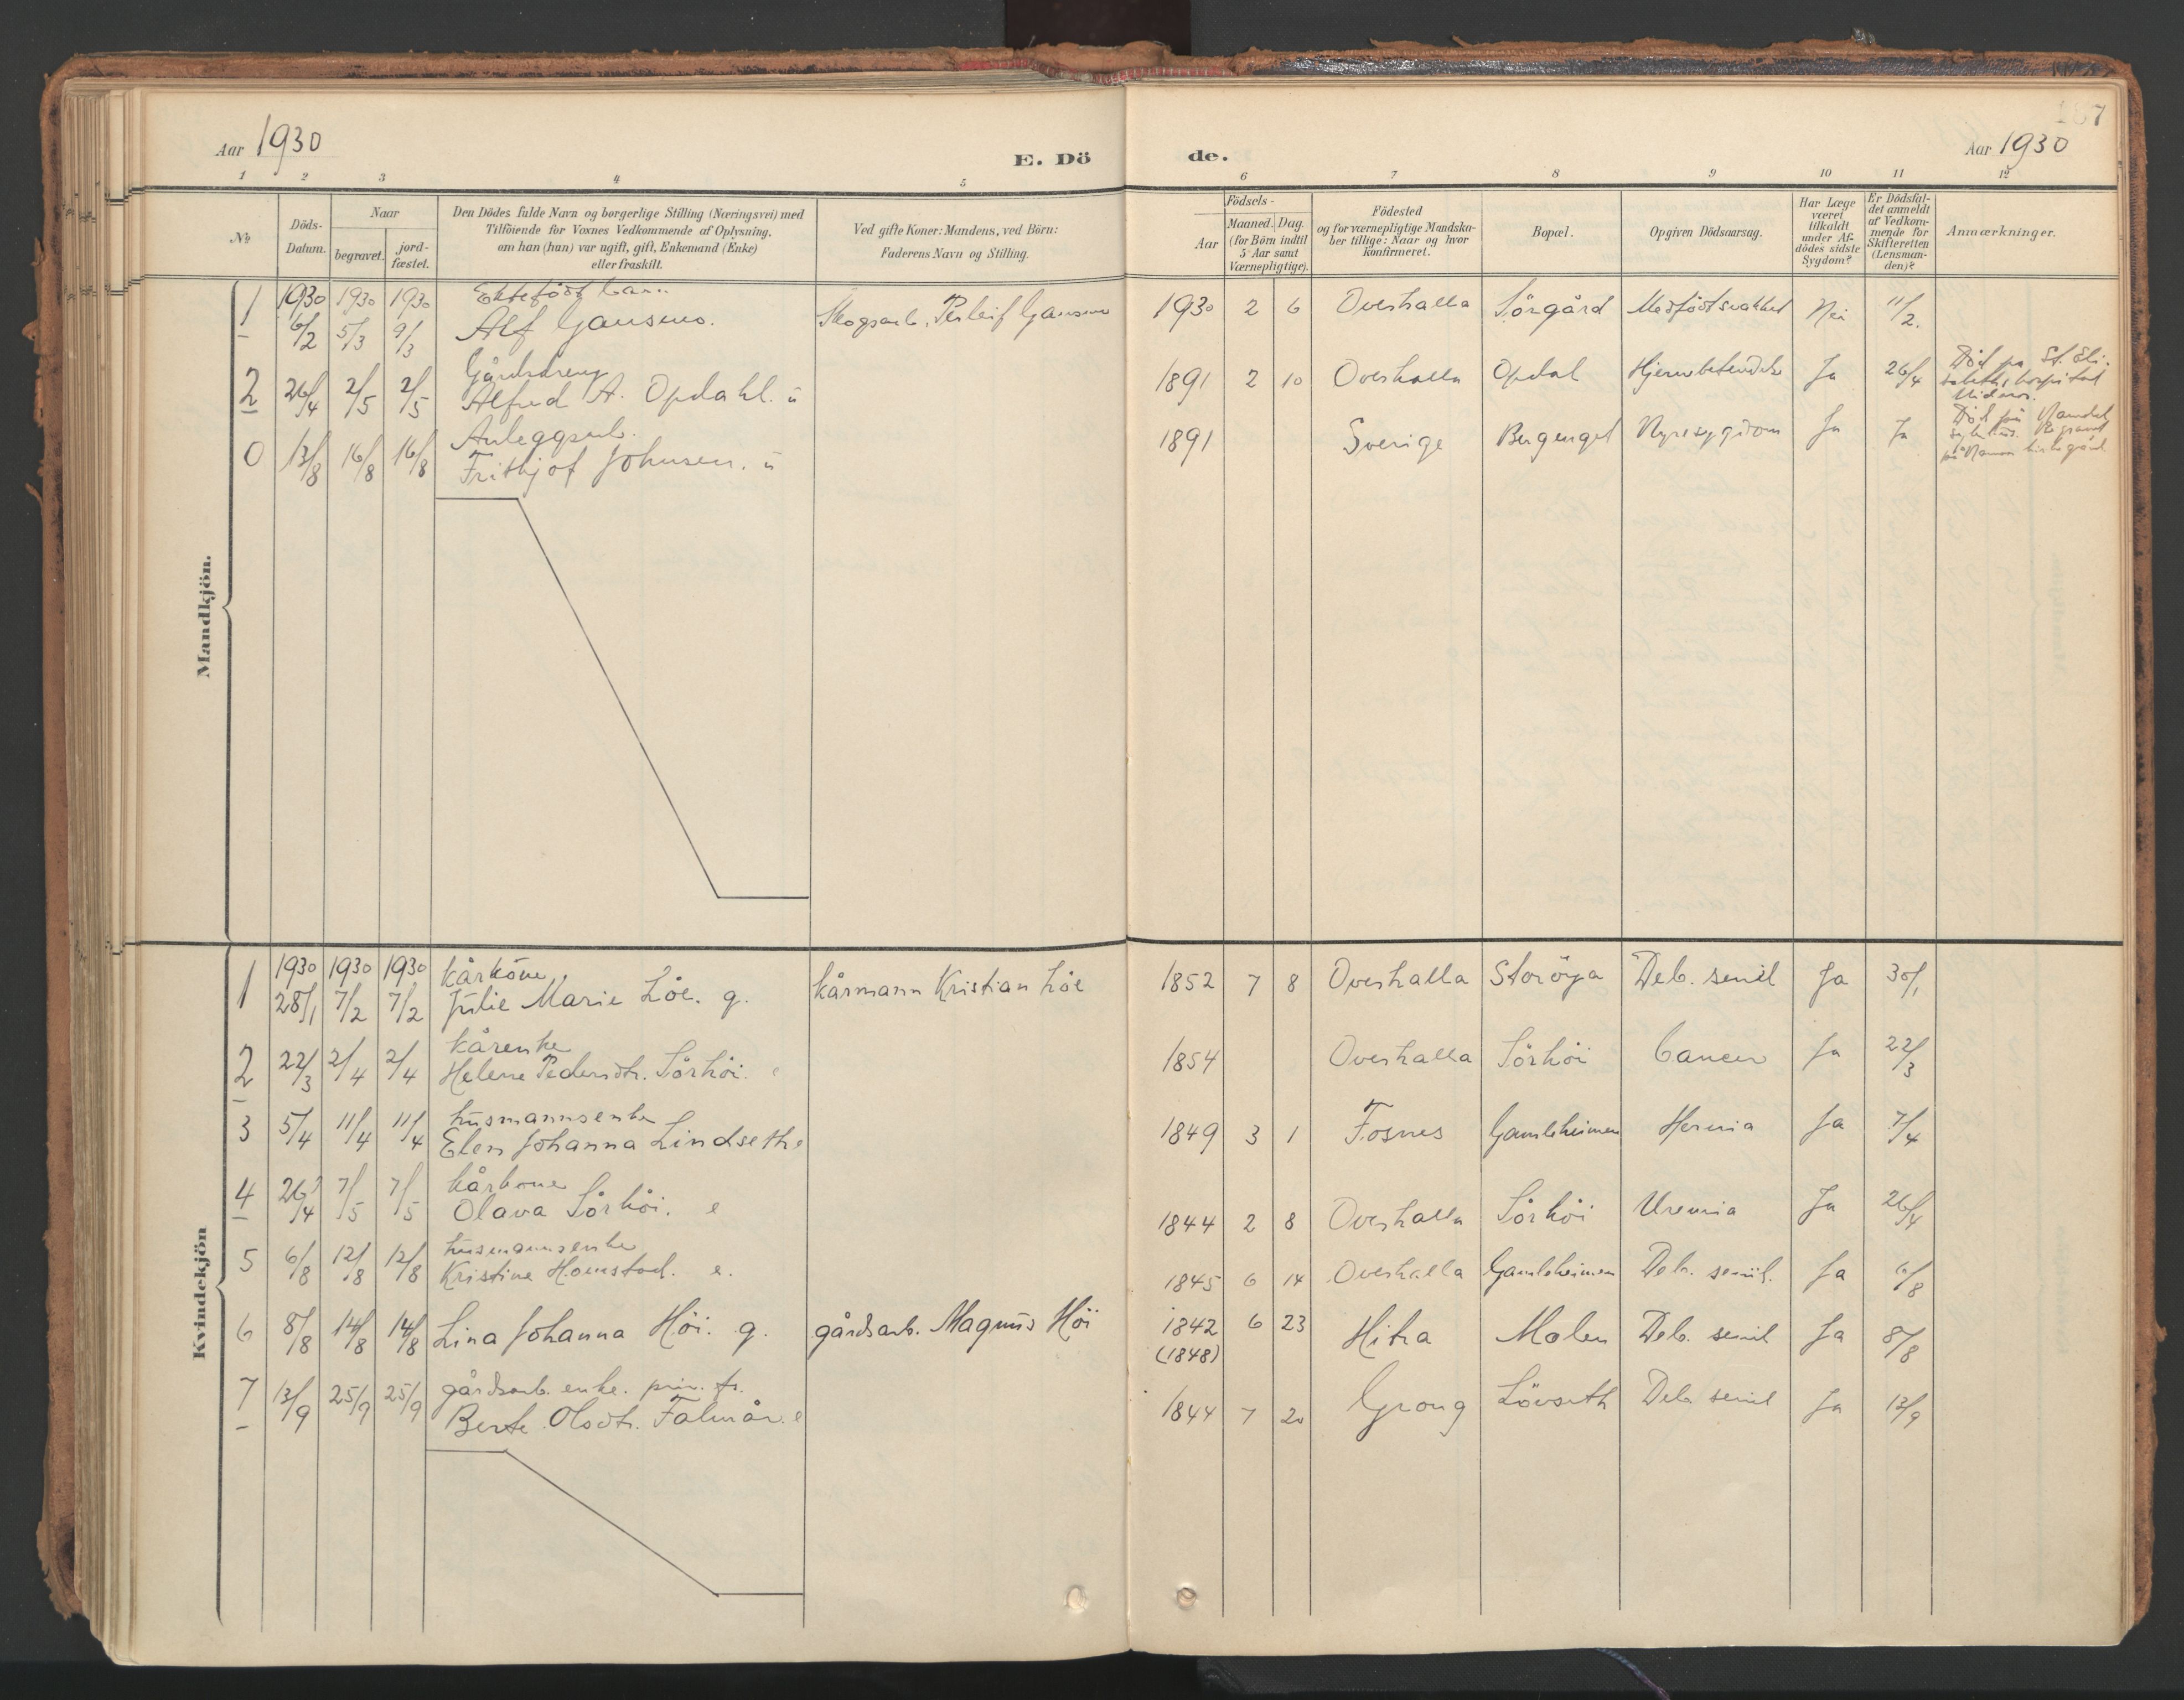 Aar 1930
E. Dö
de.
187
Aar 1930
1 2 3 4 5 6 7 8 9 10 11 12
No
Döds-
Datum.
Naar
begravet.
jord-
fæstet.
Den Dödes fulde Navn og borgerlige Stilling (Næringsvei) med
Tilföiende for Voxnes Vedkommende af Oplysning,
om han (hun) var ugift, gift, Enkemand (Enke)
eller fraskilt.
Ved gifte Koner: Mandens, ved Börn:
Faderens Navn og Stilling.
Födsels-
Aar
Maaned. Dag.
(for Börn indtil
5 Aar samt
Værnepligtige).
Födested
og for værnepligtige Mandska-
ber tillige: Naar og hvor
konfirmeret.
Bopæl.
Opgiven Dödsaarsag.
Har Læge
været
tilkaldt
under Af-
dödes sidste
Sygdom?
Er Dödsfal-
det anmeldt
af Vedkom-
mende for
Skifteretten
(Lensman-
den)?
Anmærkninger.
Mandkjön.
1 1930 1930 1930 Ektefödt barn
6/2 5/3 9/3 Alf Gansmo. Skogsarb. Perleif Gansmo 1930 2 6 Overhalla Sörgård Medfödt svakhet Nei 11/2.
Gårdsdreng
2 26/4 2/5 2/5 Alfred A. Opdahl. u 1891 2 10 Overhalla Opdal Hjernebetendelse Ja 26/4 Död på St. Eli-
sabeths hospital
Nidaros.
Anleggsarb.
0 13/8 16/8 16/8 Frithjof Johnsen. u 1891 Sverige Bergenget Nyresygdom Ja Ja Död på Namdal
sykehus. Begravet
på Namsos kirkegård
Kvindekjön
1 1930 1930 1930 kårkone
28/1 7/2 7/2 Julie Marie Löe. g. kårmann Kristian Löe 1852 7 8 Overhalla Storöya Deb. senil Ja 30/1
kårenke
2 22/3 2/4 2/4 Helene Pedersdtr. Sörhöi. e 1854 Overhalla Sörhöi Cancer Ja 22/3
husmannsenke
3 5/4 11/4 11/4 Elen Johanna Lindseth e 1849 3 1 Fosnes Gamleheimen Hernia Ja 7/4
kårkone
4 26/4 7/5 7/5 Olava Sörhöi. e 1844 2 8 Overhalla Sörhöi Uremia Ja 26/4
husmannsenke
5 6/8 12/8 12/8 Kristine Homstad. e. 1845 6 14 Overhalla Gamleheimen Deb. senil. Ja 6/8
6 8/8 14/8 14/8 Lina Johanna Höi. g. gårdsarb. Magnus Höi 1842 6 23 Hitra Molen Deb. senil Ja 8/8
(1848)
gårdsarb. enke. priv. fs.
7 13/9 25/9 25/9 Berte Olsdtr. Falmår. e 1844 7 20 Grong Lövseth Deb. senil Ja 13/9